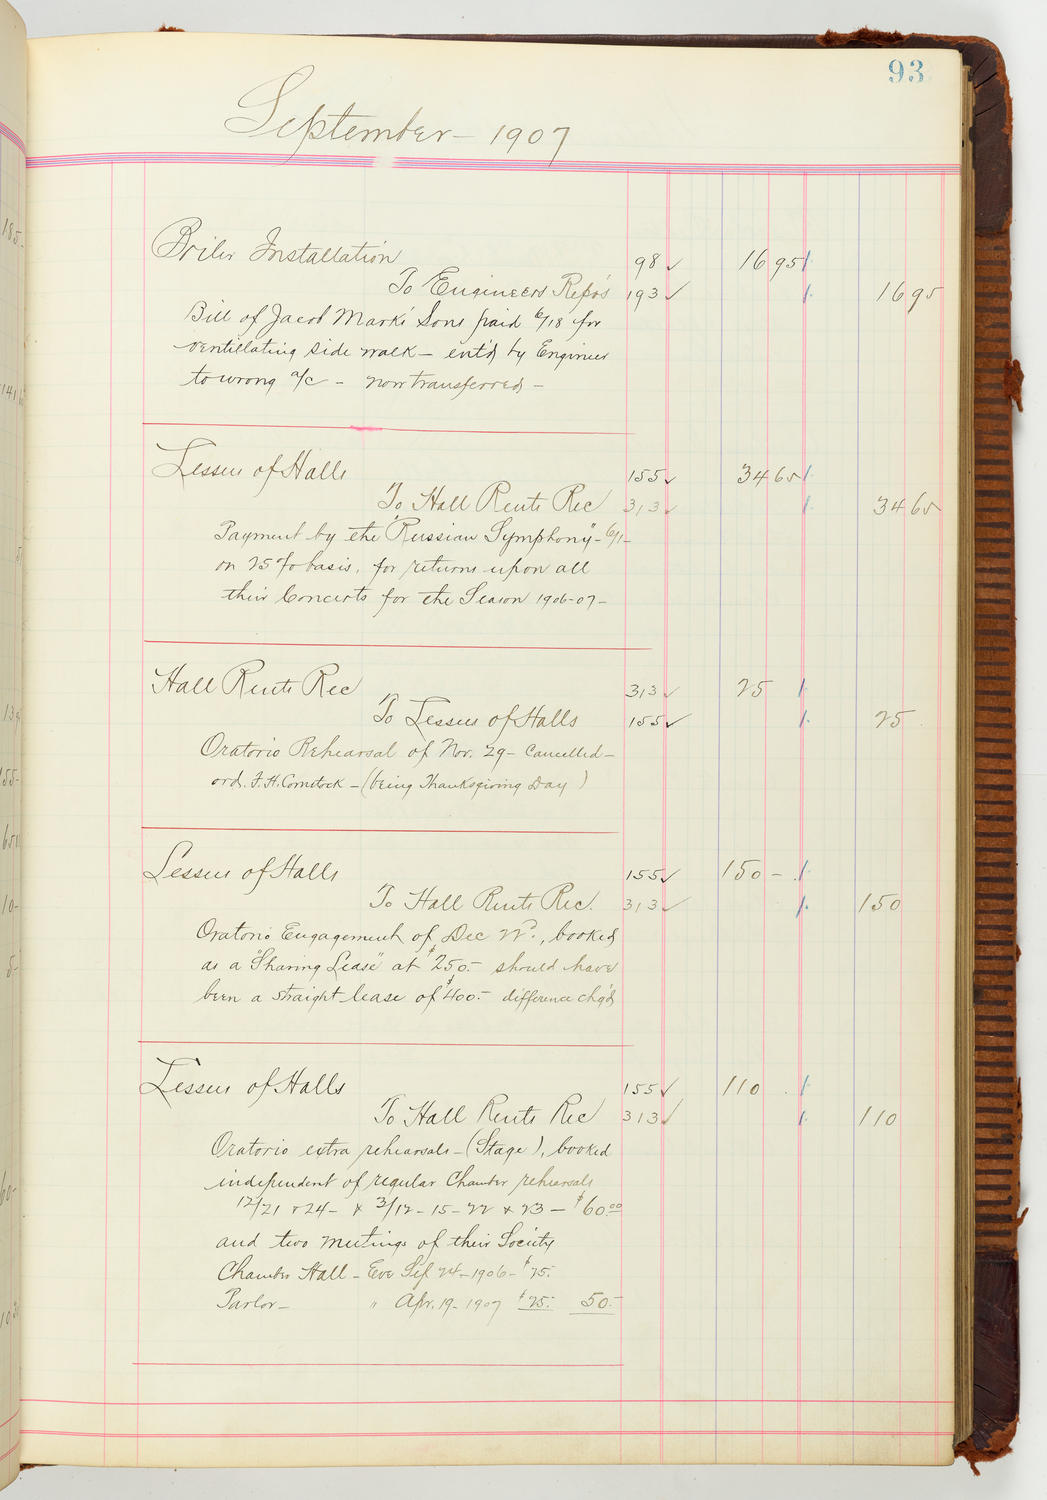 93
September - 1907
Boiler Installation 98 ✓ 16 95
To Engineers Rep'rs 193 ✓ 16 95
Bill of Jacob Marks' Sons paid 6/18 for
ventillating side walk - ent'd by Engineer
to wrong a/c - now transferred -
Lessees of Halls 155 ✓ 34 65
To Hall Rents Rec 313 ✓ 34 65
Payment by the "Russian Symphony" - 6/1 -
on 25% basis, for returns upon all
their Concerts for the Season 1906-07 -
Hall Rents Rec 313 ✓ 25
To Lessees of Halls 155 ✓ 25
Oratorio Rehearsal of Nov. 29 - Cancelled -
ord. F. H. Comstock - (being Thanksgiving Day)
Lessees of Halls 155 ✓ 150 -
To Hall Rents Rec. 313 ✓ 150
Oratorio Engagement of Dec 27., booked
as a "Sharing Lease" at $250.- should have
been a straight lease of $400.- difference chg'd
Lessees of Halls 155 ✓ 110
To Hall Rents Rec 313 ✓ 110
Oratorio extra rehearsals - (Stage), booked
independent of regular Chamber rehearsals
12/21 & 24 - & 3/12 - 15 - 22 & 23 - $60.00
and two meetings of their Society
Chamber Hall - Eve Sep 24 - 1906 - $25.-
Parlor - " Apr. 19 - 1907 $25.- 50.-